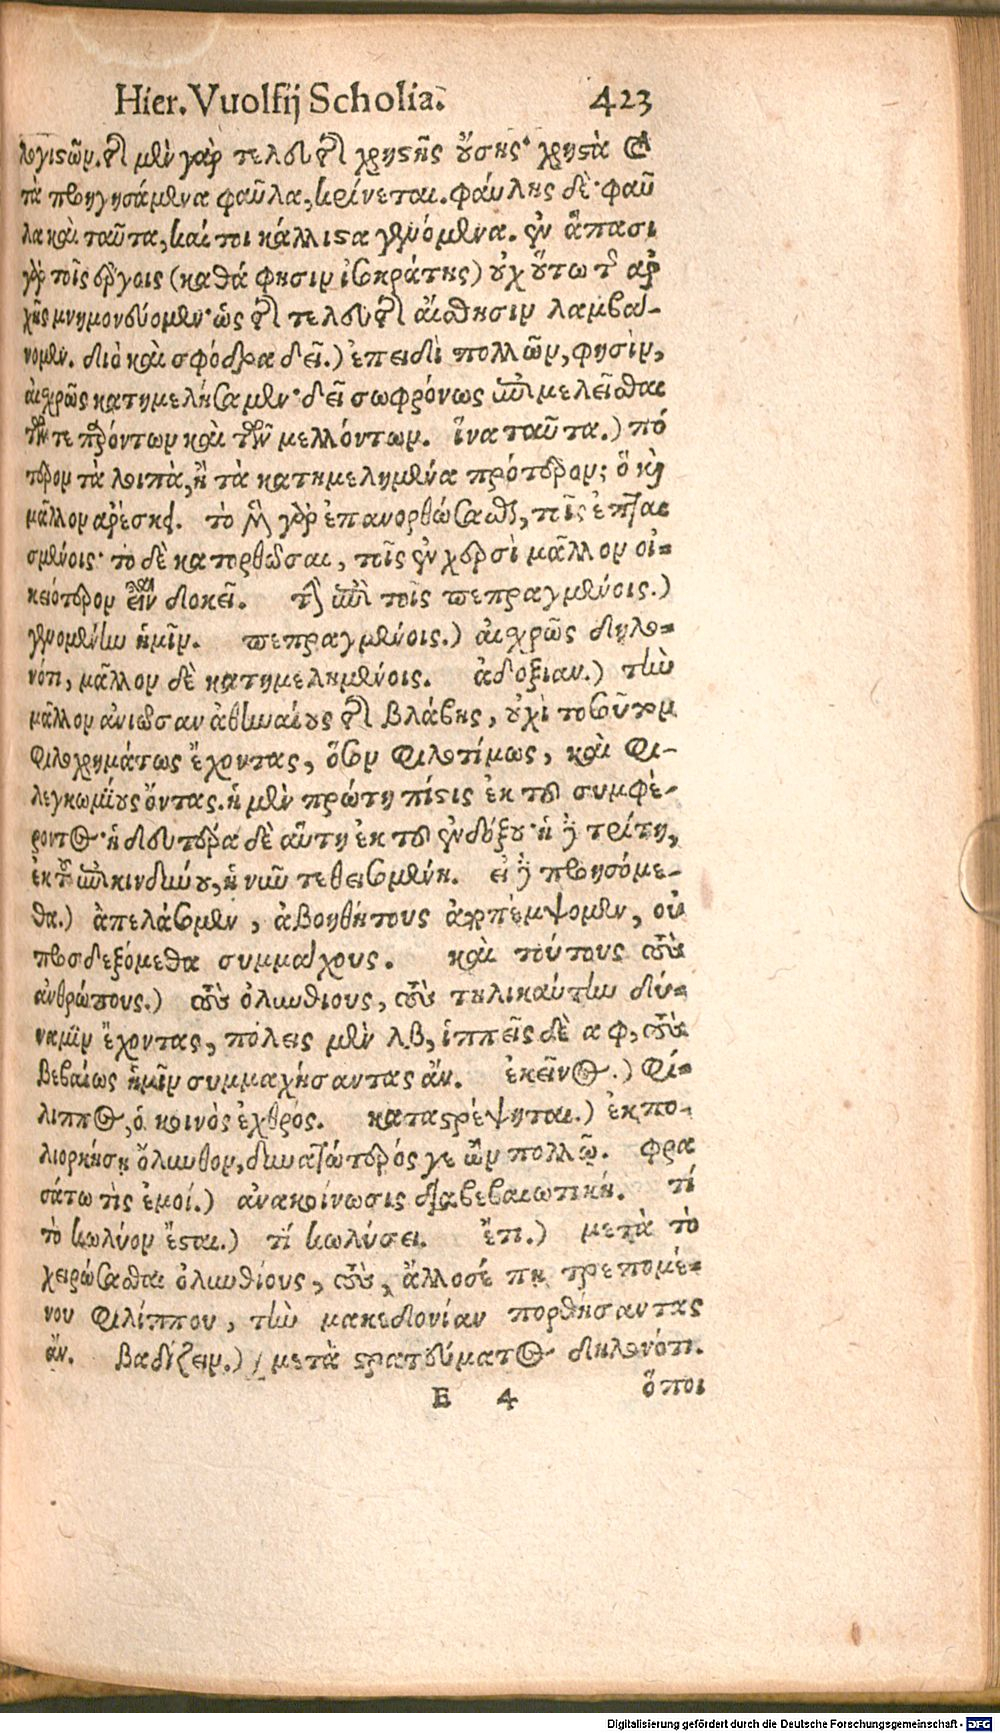 Hier. Vuolfij Scholia. 423
λογιστῶν. τῆς μὲν γὰρ τελευτῆς χρηστῆς οὔσης· χρηστὰ καὶ
τὰ προηγησάμενα φαῦλα, κρίνεται. φαύλης δὲ· φαῦ
λα καὶ ταῦτα, καί τοι κάλλιστα γενόμενα. ἐν ἅπασι
γὰρ τοῖς ἔργοις (καθά φησιν ἰσοκράτης) οὐχ οὕτω τῆς ἀρ
χῆς μνημονεύομεν· ὡς τῆς τελευτῆς αἴσθησιν λαμβά-
νομεν. διὸ καὶ σφόδρα δεῖ.) ἐπειδὴ πολλῶν, φησὶν,
αἰσχρῶς κατημελήσαμεν· δεῖ σωφρόνως ἐπιμελεῖσθαι
τῶν τε παρόντων καὶ τῶν μελλόντων. ἵνα ταῦτα.) πό
τερον τὰ λοιπὰ, ἢ τὰ κατημελημένα πρότερον; ὃ καὶ
μᾶλλον ἀρέσκει. τὸ μὲν γὰρ ἐπανορθώσασθαι, τοῖς ἐπται
σμένοις· τὸ δὲ κατορθῶσαι, τοῖς ἐν χερσὶ μᾶλλον οἰ-
κειότερον εἶναι δοκεῖ. τὴν ἐπὶ τοῖς πεπραγμένοις.)
γενομένην ἡμῖν. πεπραγμένοις.) αἰσχρῶς δηλο-
νότι, μᾶλλον δὲ κατημελημένοις. ἀδοξίαν.) τὴν
μᾶλλον ἀνιῶσαν ἀθηναίους τῆς βλάβης, οὐχὶ τοσοῦτον
φιλοχρημάτως ἔχοντας, ὅσον φιλοτίμως, καὶ φι-
λεγκωμίους ὄντας. ἡ μὲν πρώτη πίστις ἐκ τοῦ συμφέ-
ροντος· ἡ δευτέρα δὲ αὕτη ἐκ τοῦ ἐνδόξου· ἡ δὲ τρίτη,
ἐκ τοῦ ἐπικινδύνου, ἡ νῦν τεθεισομένη. εἰ δὲ προησόμε-
θα.) ἀπελάσομεν, ἀβοηθήτους ἀποπέμψομεν, οὐ
προσδεξόμεθα συμμάχους. καὶ τούτους τοὺς
ἀνθρώπους.) τοὺς ὀλυνθίους, τοὺς τηλικαύτην δύ-
ναμιν ἔχοντας, πόλεις μὲν λβ, ἱππεῖς δὲ α φ, τοὺς
βεβαίως ἡμῖν συμμαχήσαντας ἄν. ἐκεῖνος.) φί-
λιππος, ὁ κοινὸς ἐχθρός. καταστρέψηται.) ἐκπο-
λιορκήσῃ ὄλυνθον, δυναιτώτερός γε ὢν πολλῷ. φρα
σάτω τὶς ἐμοί.) ἀνακοίνωσις διαβεβαιωτική. τί
τὸ κωλύον ἔσται.) τί κωλύσει. ἔτι.) μετὰ τὸ
χειρώσασθαι ὀλυνθίους, τοὺς, ἄλλοσέ πη τρεπομέ-
νου φιλίππου, τὴν μακεδονίαν πορθήσαντας
ἄν. βαδίζειν.) μετὰ στρατεύματος δηλονότι.
E 4 ὅποι
Digitalisierung gefördert durch die Deutsche Forschungsgemeinschaft - DFG